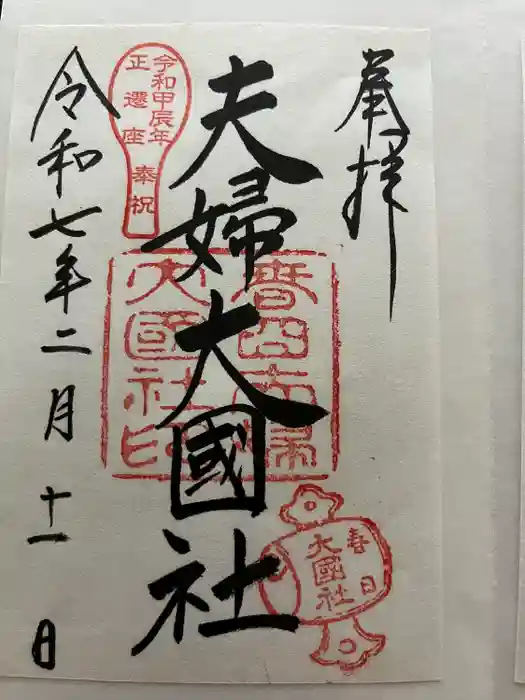 奉拝
夫婦大國社
令和七年二月十一日
令和甲辰年
正遷座奉祝
春日夫婦
大國社印
春日
大國社